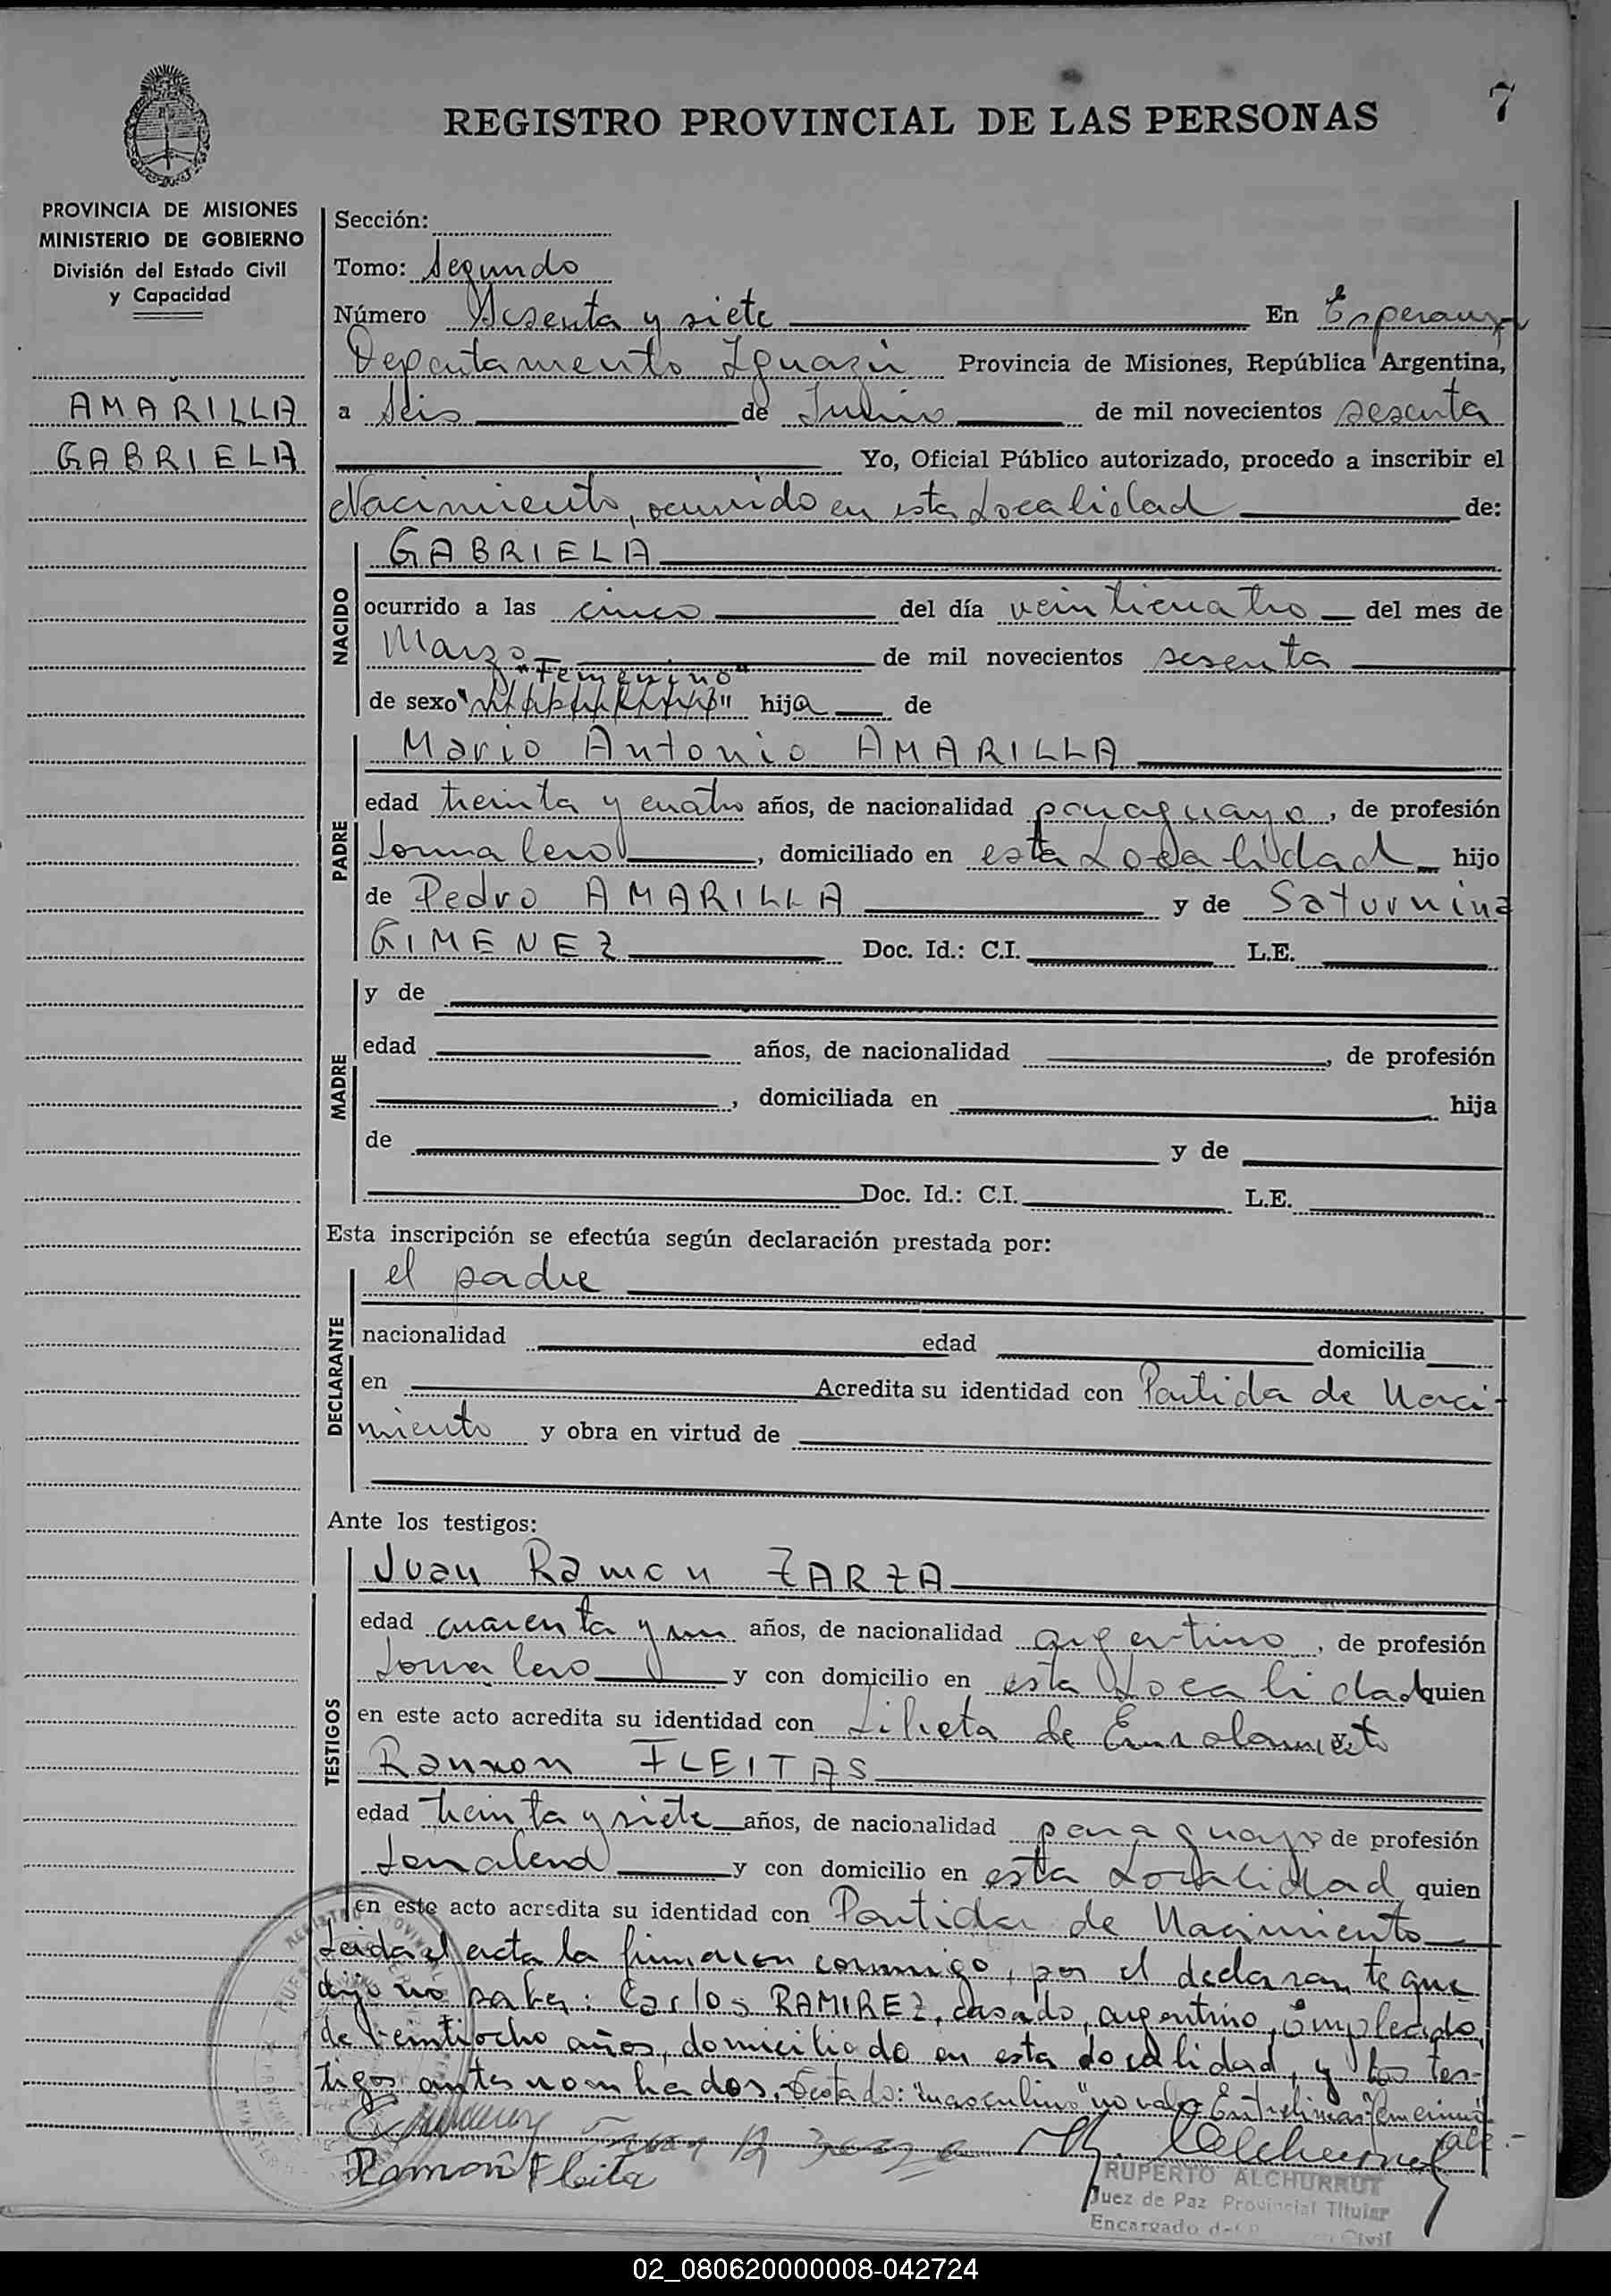 7
REGISTRO PROVINCIAL DE LAS PERSONAS
PROVINCIA DE MISIONES
MINISTERIO DE GOBIERNO
División del Estado Civil
y Capacidad
AMARILLA
GABRIELA
Sección:
Tomo: Segundo
Número Sesenta y siete En Esperanza
Departamento Iguazú Provincia de Misiones, República Argentina,
a Seis de Junio de mil novecientos sesenta
Yo, Oficial Público autorizado, procedo a inscribir el
Nacimiento, ocurrido en esta Localidad de:
NACIDO
GABRIELA
ocurrido a las cinco del día veinticuatro del mes de
Marzo de mil novecientos sesenta
"Femenino"
de sexo hija de
PADRE
Mario Antonio AMARILLA
edad treinta y cuatro años, de nacionalidad paraguayo, de profesión
Jornalero, domiciliado en esta Localidad hijo
de Pedro AMARILLA y de Saturnina
GIMENEZ Doc. Id.: C.I. L.E.
MADRE
y de
edad años, de nacionalidad , de profesión
, domiciliada en hija
de y de
Doc. Id.: C.I. L.E.
Esta inscripción se efectúa según declaración prestada por:
DECLARANTE
el padre
nacionalidad edad domicilia
en Acredita su identidad con Partida de Naci-
miento y obra en virtud de
Ante los testigos:
TESTIGOS
Juan Ramon ZARZA
edad cuarenta y un años, de nacionalidad argentino, de profesión
Jornalero y con domicilio en esta Localidad quien
en este acto acredita su identidad con Libreta de Enrolamiento
Ramon FLEITAS
edad treinta y siete años, de nacionalidad paraguayo de profesión
Jornalero y con domicilio en esta Localidad quien
en este acto acredita su identidad con Partida de Nacimiento
Leida el acta la firmaron conmigo, por el declarante que
dijo no saber: Carlos RAMIREZ, casado, argentino, empleado,
de veintiocho años, domiciliado en esta Localidad, y los tes-
tigos antes nombrados. Testado: "masculino" no vale Entrelineas: "femenino"
vale.-
Ramon Fleita
RUPERTO ALCHURRUT
Juez de Paz Provincial Titular
Encargado del Civil
02_080620000008-042724